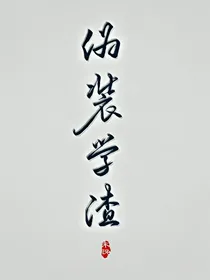 伪装学渣